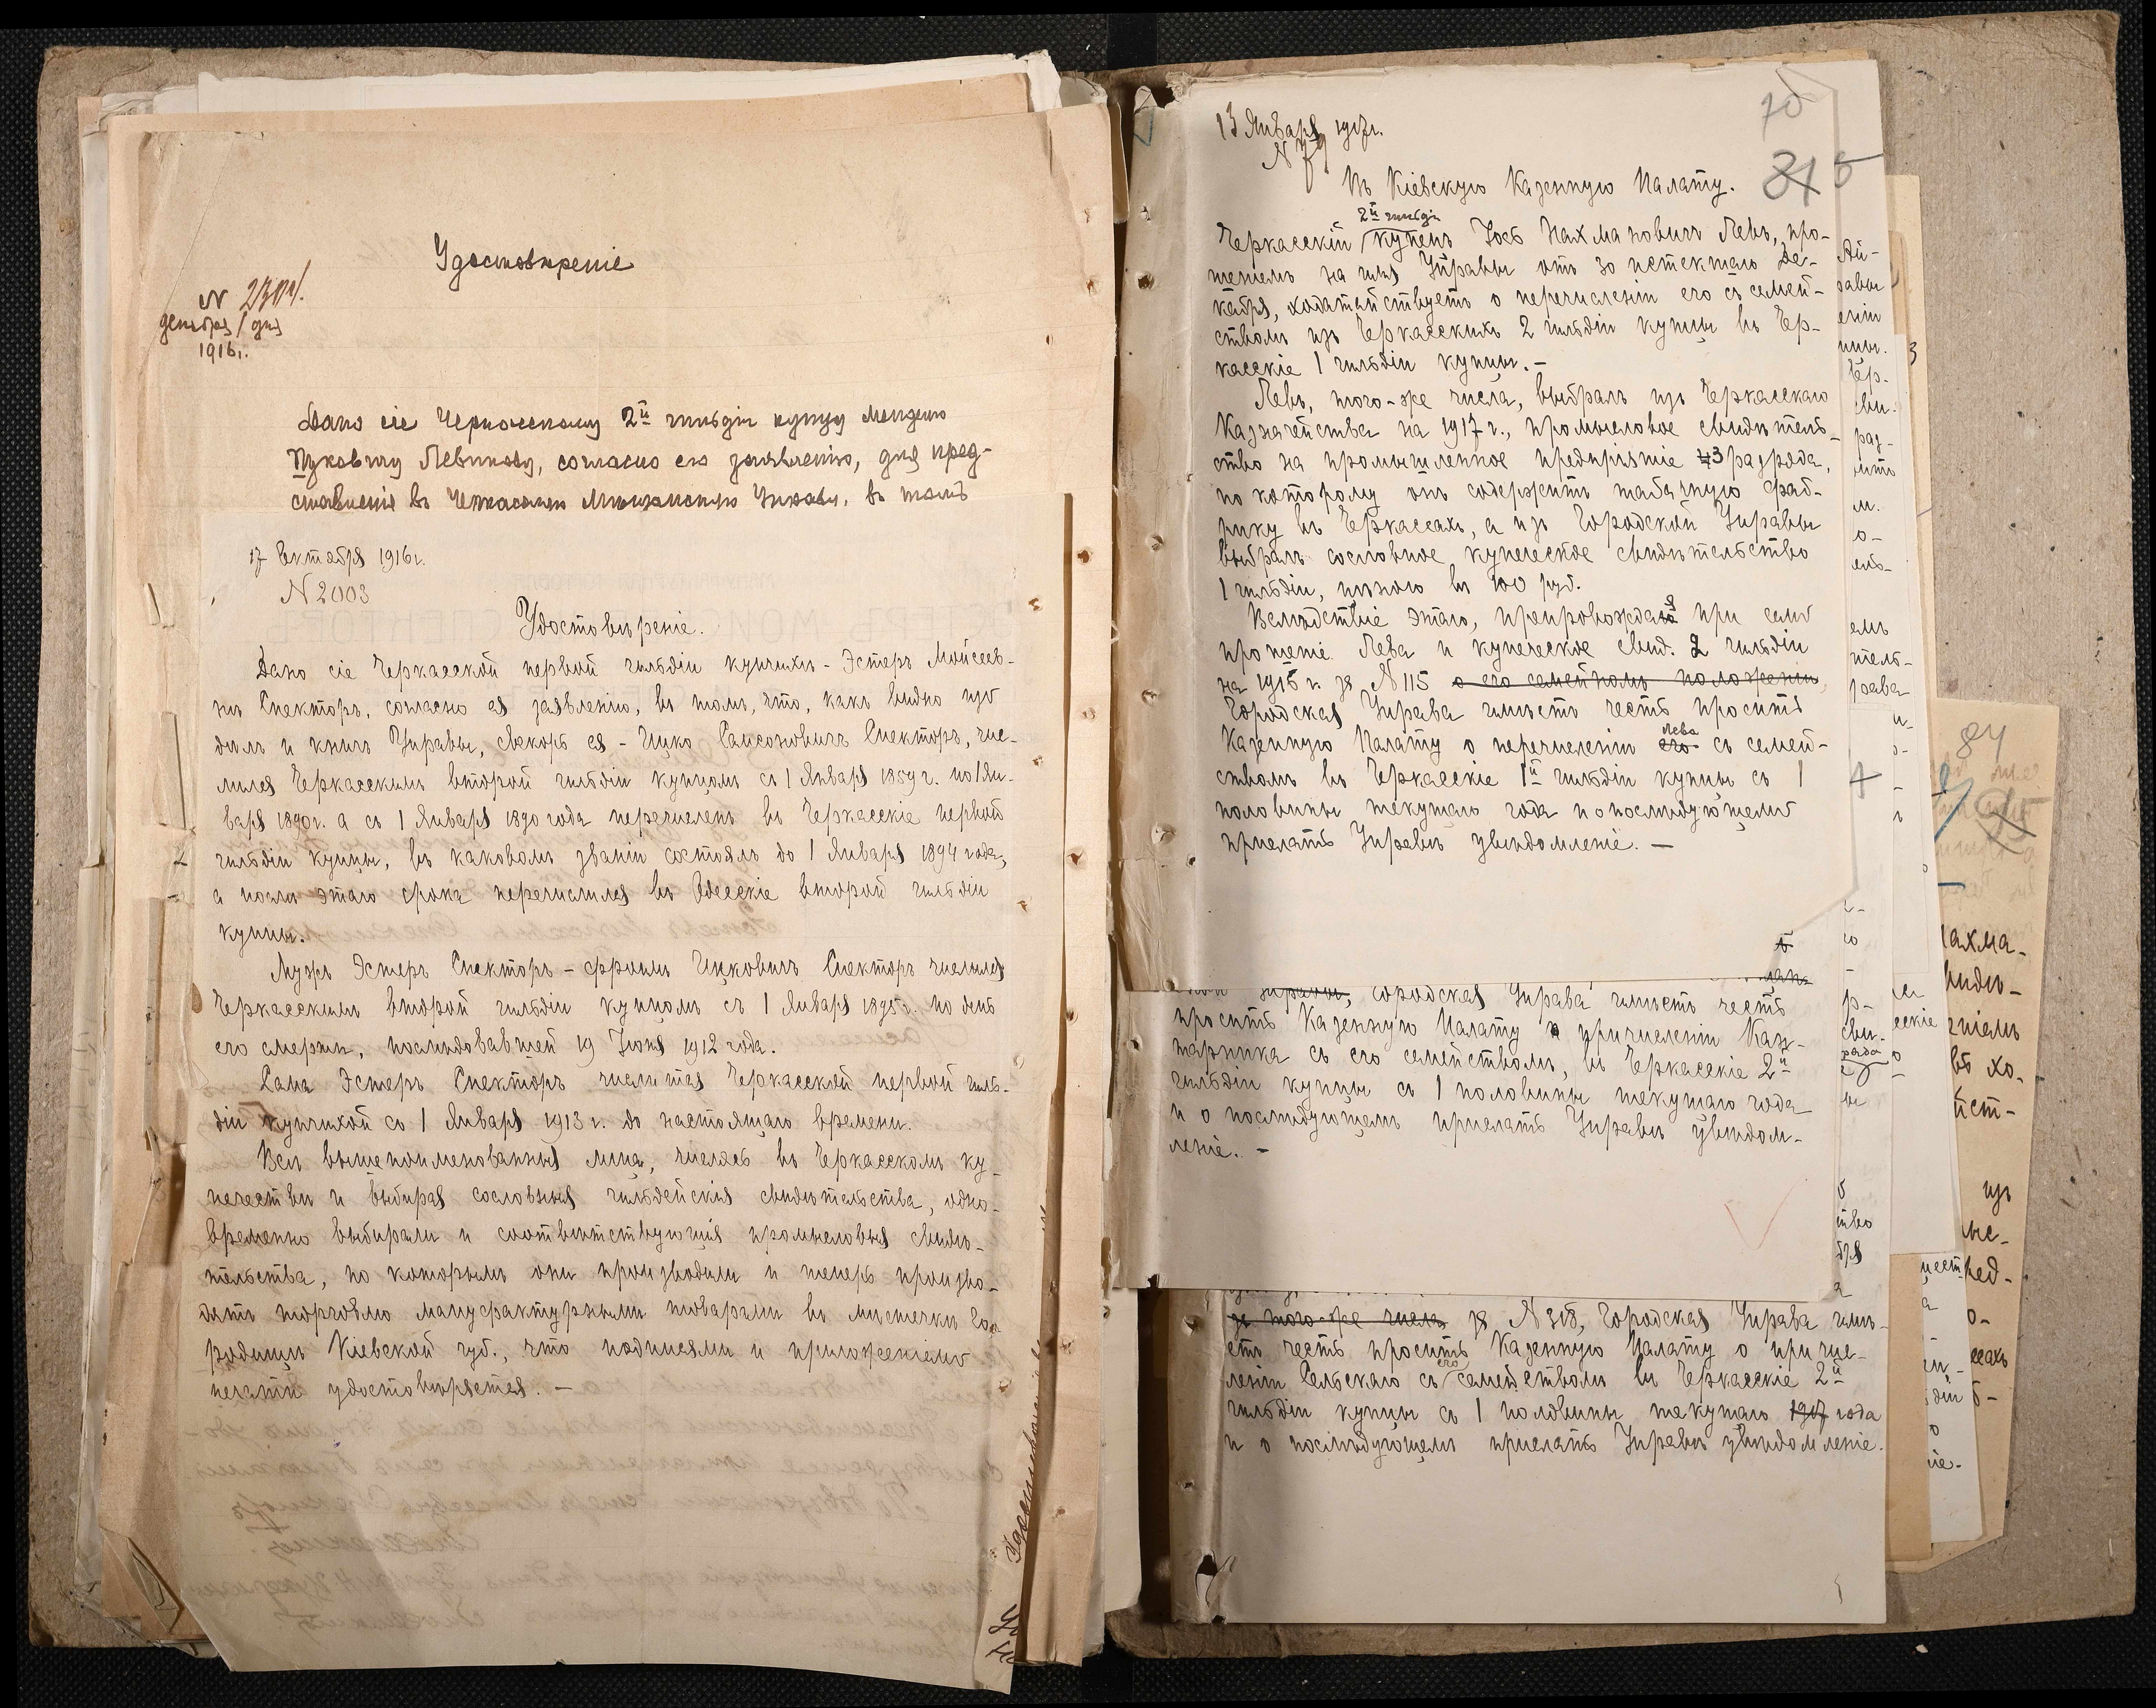 Удостовѣреніе
N 2304.
декабря 1 дня
1916 г.
Дано сіе Черкасскому 2й гильдіи купцу Менделю
Ицковичу Левикову, согласно его заявленію, для пред-
ставленія въ Черкасскую Мѣщанскую Управу, въ томъ
17 Октября 1916 г.
N 2003
Удостовѣреніе.
Дано сіе Черкасской первой гильдіи купчихѣ - Эстеръ Мойсеев-
нѣ Спекторъ, согласно ея заявленію, въ томъ, что, какъ видно изъ
дѣлъ и книгъ Управы, свекоръ ея - Ицко Самсоновичъ Спекторъ, чис-
лился Черкасскимъ второй гильдіи купцомъ съ 1 Января 1859 г. по 1 Ян-
варя 1890 г. а съ 1 Января 1890 года перечисленъ въ Черкасскіе первой
гильдіи купцы, въ каковомъ званіи состоялъ до 1 Января 1894 года,
а послѣ этаго срока перечислился въ Одесскіе второй гильдіи
купцы.
Мужъ Эстеръ Спекторъ - Фроимъ Ицковичъ Спекторъ числился
Черкасскимъ второй гильдіи купцомъ съ 1 Января 1895 г. по день
его смерти, послѣдовавшей 19 Іюня 1912 года.
Сама Эстеръ Спекторъ числится Черкасской первой гиль-
діи купчихой со 1 Января 1913 г. до настоящаго времени.
Всѣ вышепоименованныя лица, числясь въ Черкасскомъ ку-
печествѣ и выбирая сословныя гильдейскія свидѣтельства, одно-
временно выбирали и соотвѣтствующія промысловыя свидѣ-
тельства, по которымъ они производили и теперь произво-
дятъ торговлю мануфактурными товарами въ мѣстечкѣ Го-
родищѣ Кіевской губ., что подписями и приложеніемъ
печати удостовѣряется. -
13 Января 1917 г.
N 79
70
81
Въ Кіевскую Казенную Палату.
2й гильдіи
Черкасскій купецъ Іось Нахмановичъ Левъ, про-
шеніемъ на имя Управы отъ 30 истекшаго Де-
кабря, ходатайствуетъ о перечисленіи его съ семей-
ствомъ изъ Черкасскихъ 2 гильдіи купцы въ Чер-
касскіе 1 гильдіи купцы. -
Левъ, того-же числа, выбралъ изъ Черкасскаго
Казначейства на 1917 г., промысловое свидѣтель-
ство на промышленное предпріятіе 3 разряда,
по которому онъ содержитъ табачную фаб-
рику въ Черкассахъ, а изъ Городской Управы
выбралъ сословное купеческое свидѣтельство
1 гильдіи, цѣною въ 100 руб.
Вслѣдствіе этаго, препровождая при семъ
прошеніе Лева и купеческое свид. 2 гильдіи
на 1916 г. за N 115 о его семейномъ положеніи,
Городская Управа имѣетъ честь просить
Казенную Палату о перечисленіи его Лева съ семей-
ствомъ въ Черкасскіе 1й гильдіи купцы съ 1
половины текущаго года и о послѣдующемъ
прислать Управѣ увѣдомленіе. -
Управы, Городская Управа имѣетъ честь
просить Казенную Палату о причисленіи Каж-
тарника съ его семействомъ, въ Черкасскіе 2й
гильдіи купцы съ 1 половины текущаго года
и о послѣдующемъ прислать Управѣ увѣдом-
леніе. -
за того-же числа за N 318, Городская Управа имѣ-
етъ честь просить Казенную Палату о причис-
леніи Сельскаго съ его семействомъ въ Черкасскіе 2й
гильдіи купцы со 1 половины текущаго 1917 года
и о послѣдующемъ прислать Управѣ увѣдомленіе.
84